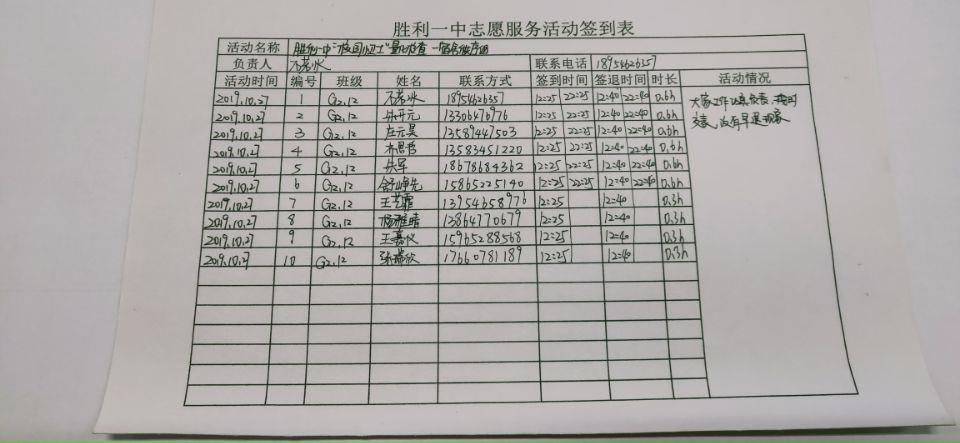 胜利一中志愿服务活动签到表
活动名称 胜利一中"校园卫士"
负责人 联系电话 18954626357
活动时间 编号 班级 姓名 联系方式 签到时间 签退时间 时长 活动情况
2019.10.27 1 G2,12 18954626357 12:25 22:25 12:40 22:40 0.6h
2019.10.27 2 G2,12 12:25 22:25 12:40 22:40 0.6h
2019.10.27 3 G2,12 庄元昊 13589447503 12:25 22:25 12:40 22:40 0.6h
2019.10.27 4 G2,12 13583451220 12:25 22:25 12:40 22:40 0.6h
2019.10.27 5 G2,12 18678684362 12:25 22:25 12:40 22:40 0.6h
2019.10.27 6 G2,12 15865225140 12:25 22:25 12:40 22:40 0.6h
2019.10.27 7 G2,12 王艺霏 13954658976 12:25 12:40 0.3h
2019.10.27 8 G2,12 杨雅晴 13864770679 12:25 12:40 0.3h
2019.10.27 9 G2,12 王嘉仪 15965288568 12:25 12:40 0.3h
2019.10.27 10 G2,12 张瑞欣 17660781189 12:25 12:40 0.3h
大家工作认真负责,按时
没有早退现象